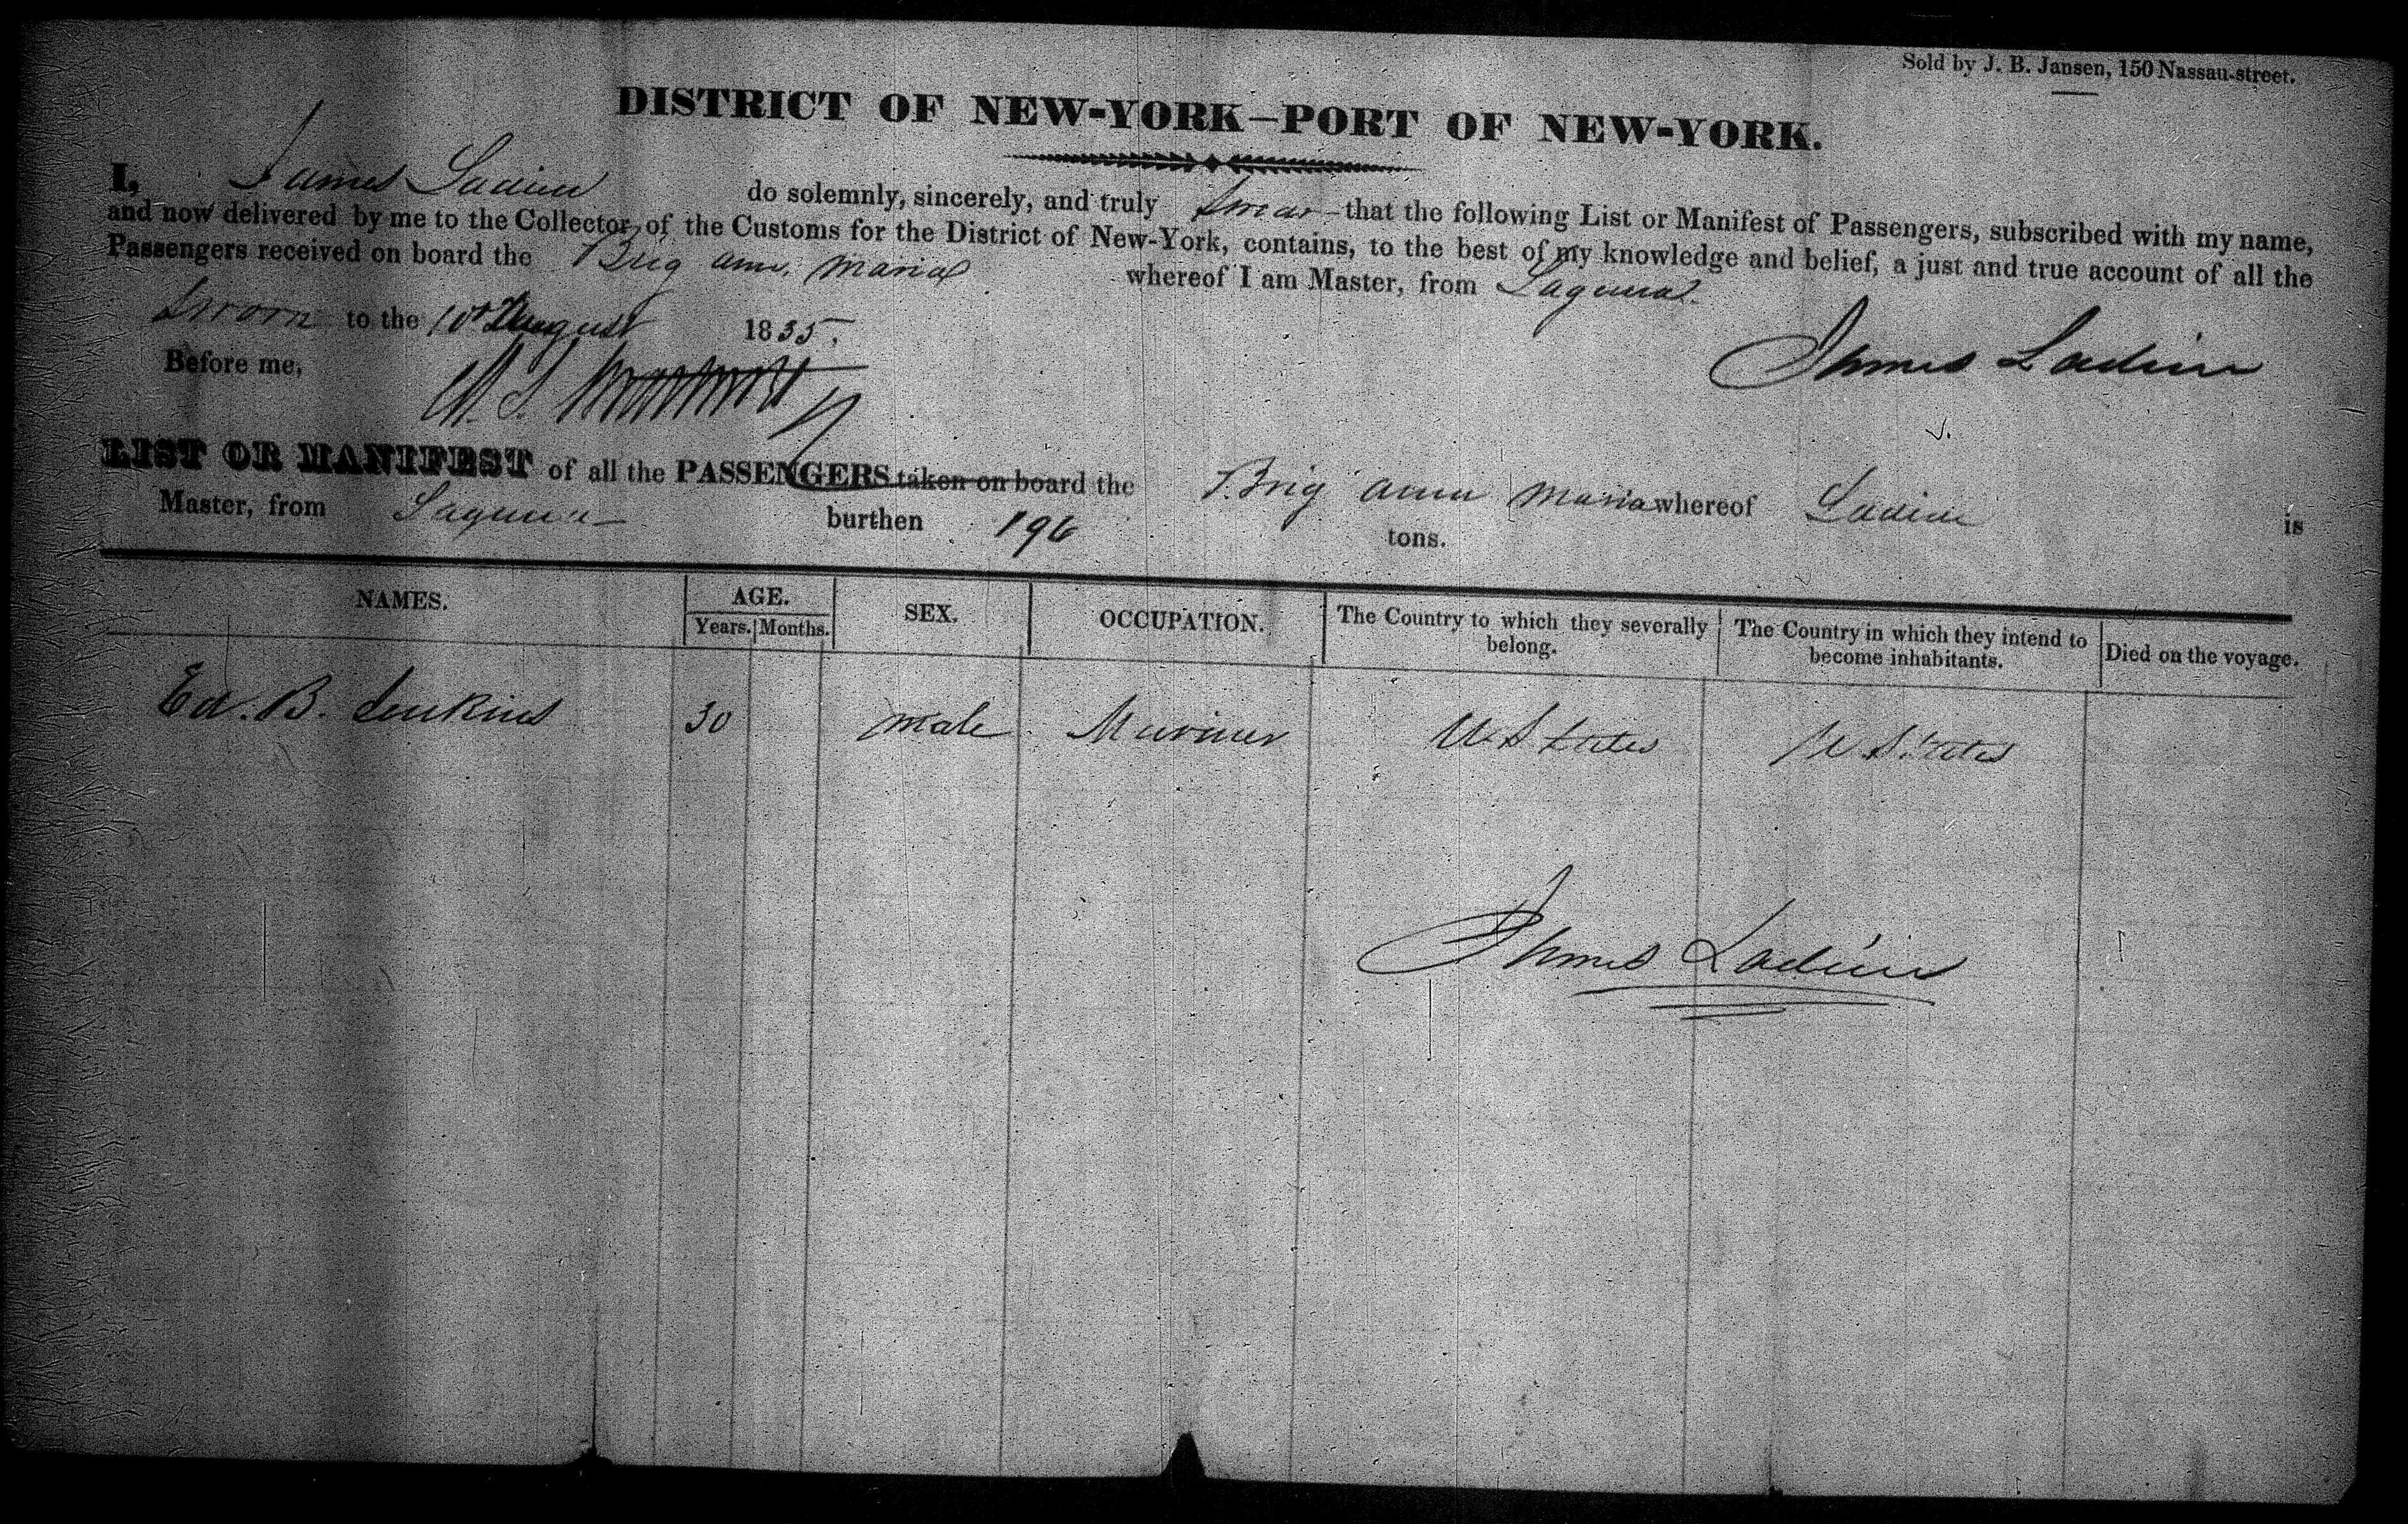 Sold by J. B. Jansen, 150 Nassau-street.
DISTRICT OF NEW-YORK—PORT OF NEW-YORK.
I, James Ladieu do solemnly, sincerely, and truly Swear that the following List or Manifest of Passengers, subscribed with my name,
and now delivered by me to the Collector of the Customs for the District of New-York, contains, to the best of my knowledge and belief, a just and true account of all the
Passengers received on board the Brig ann maria whereof I am Master, from Laguna.
Sworn to the 10 August 1835.
James
Before me,
LIST OR MANIFEST of all the PASSENGERS taken on board the Brig ann maria whereof is
Master, from Laguna burthen 196 tons.
NAMES. AGE. Years. Months. SEX. OCCUPATION. The Country to which they severally belong. The Country in which they intend to become inhabitants. Died on the voyage.
Ed. B. Jenkins 30 male Mariner U States U States
James